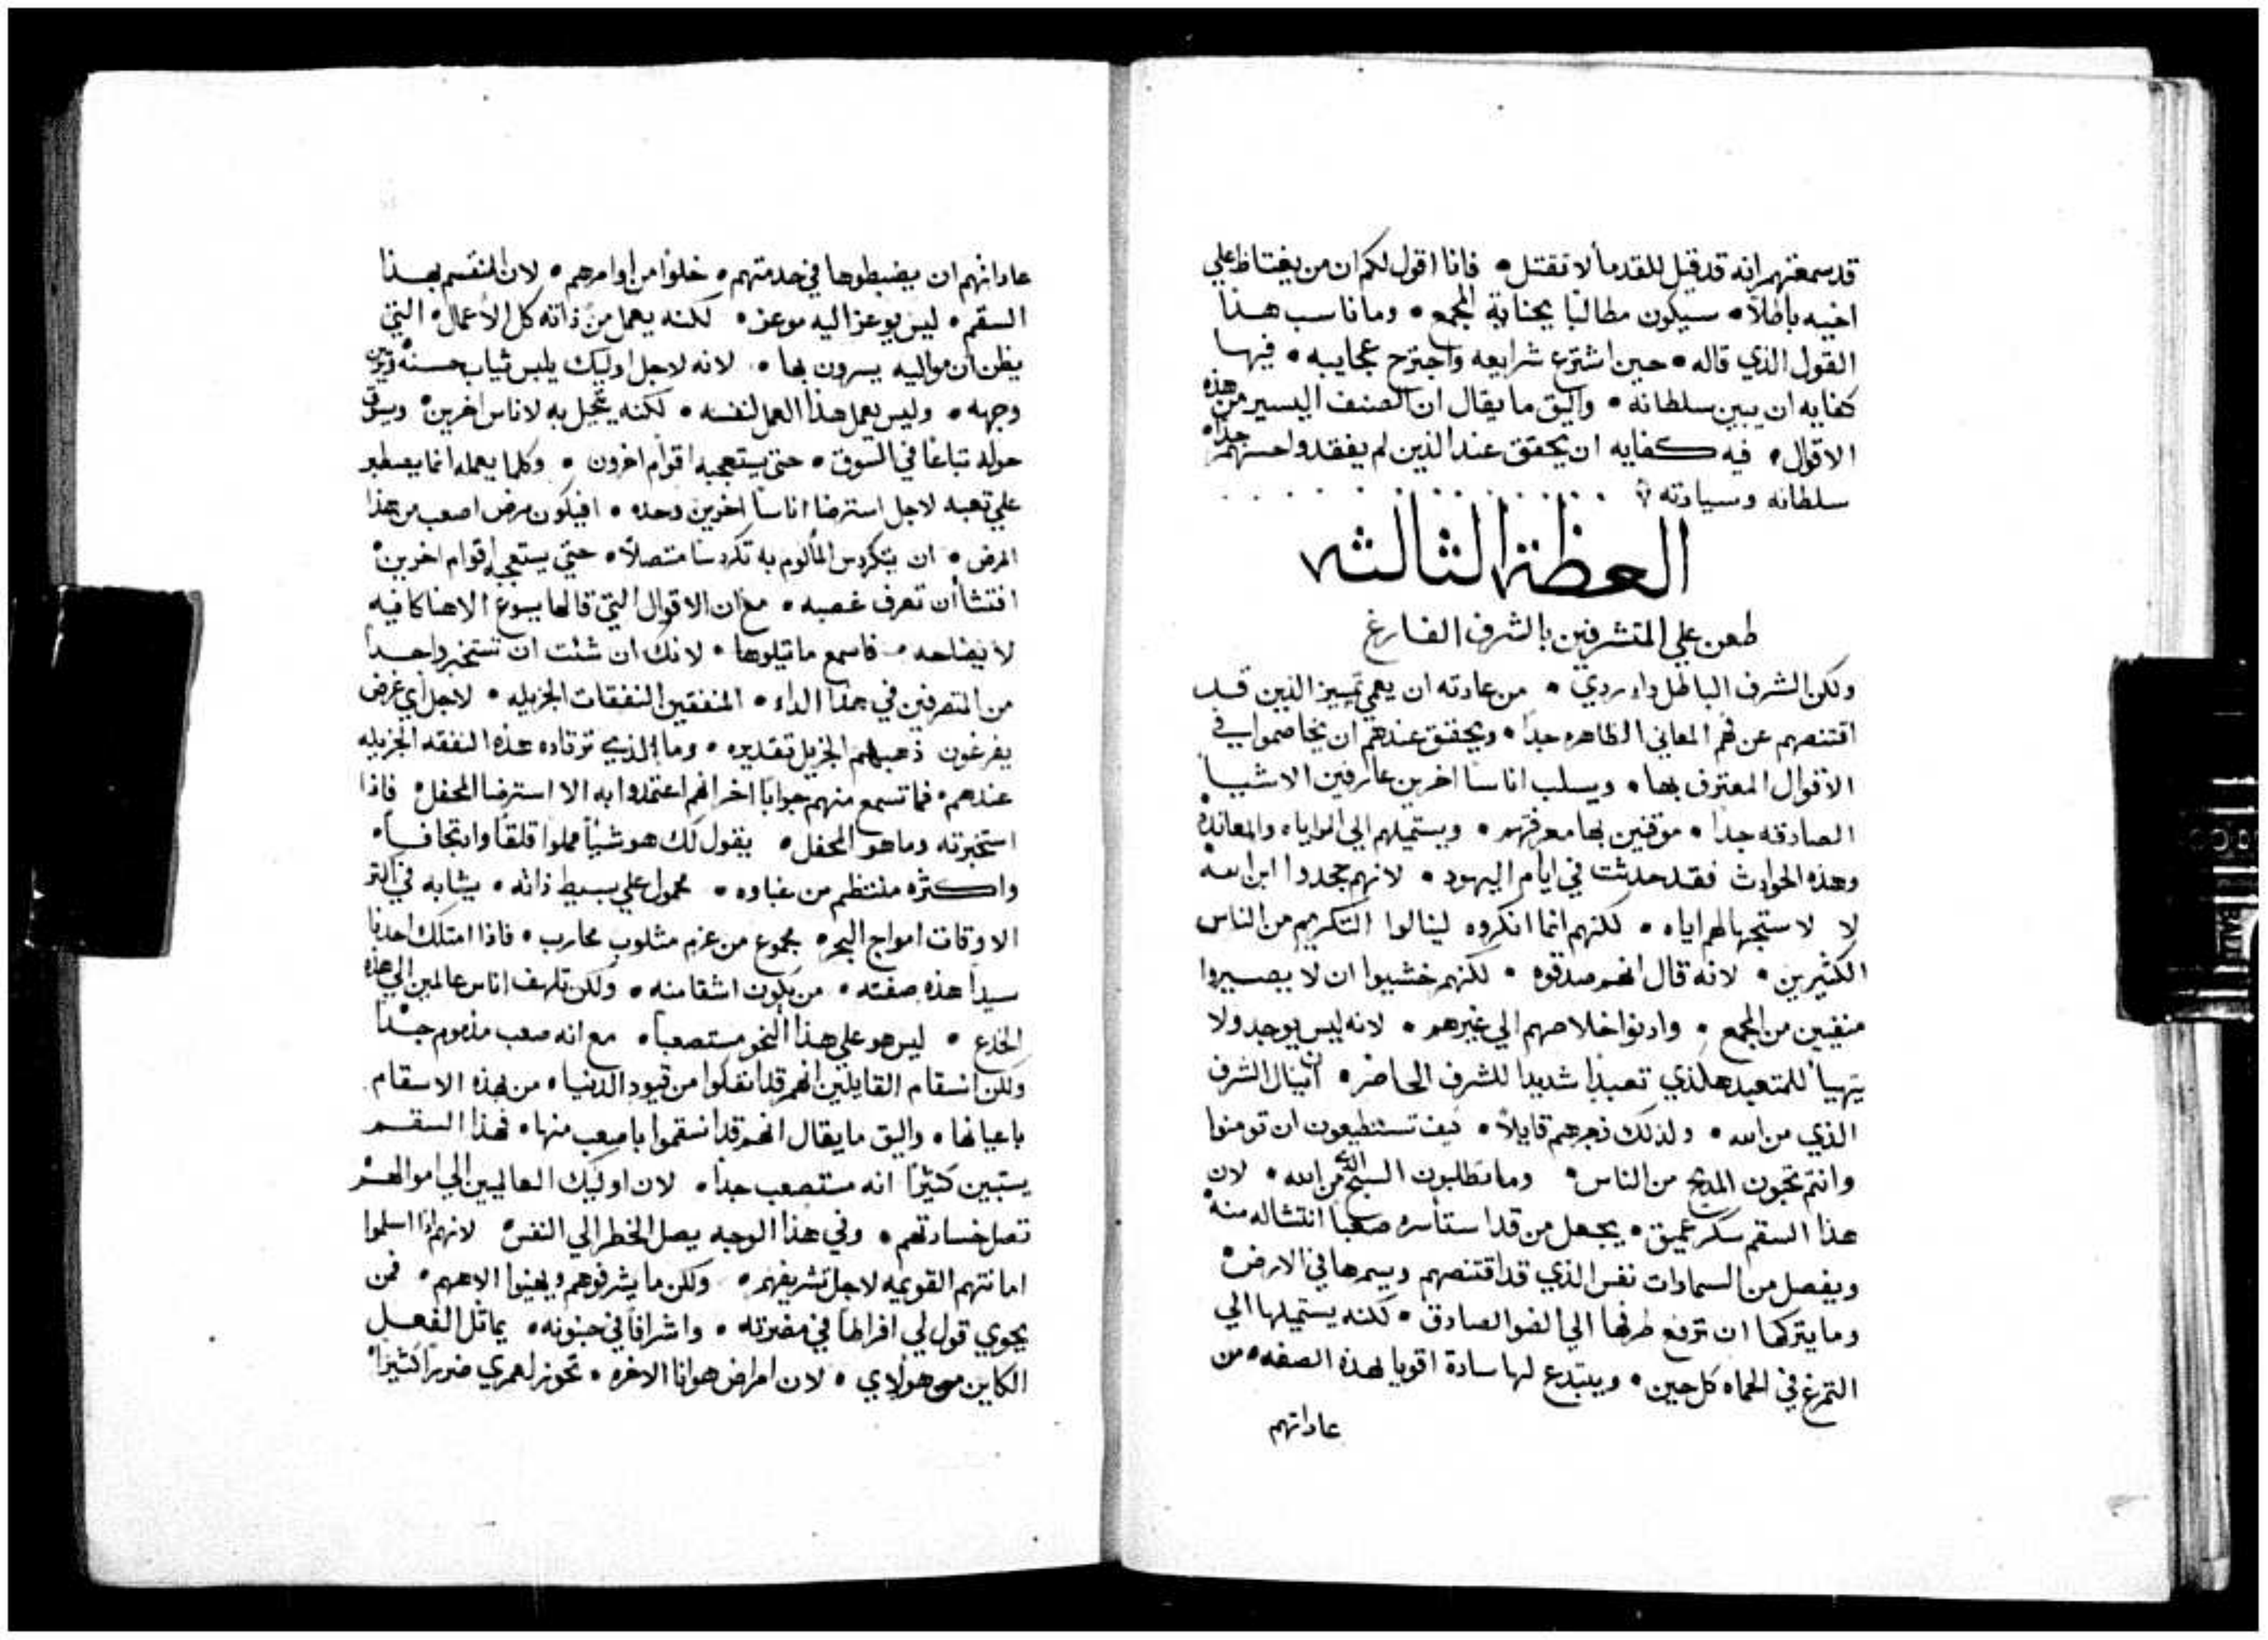 قد سمعتهم انه قد قيل للقدما لا تقتل • فانا اقول لكم ان من يغتاظ علي
اخيه باطلاً • سيكون مطالبًا بجناية المجمع • وما ناسب هذا
القول الذي قاله • حين اشترع شرايعه واجترح عجايبه • فيها
كفايه ان يبين سلطانه • واليق ما يقال ان الصنف اليسير من هذه
الاقوال • فيه كفايه ان يحقق عند الذين لم يفقدوا حسهم جدًا •
سلطانه وسيادته
العظة الثالثه
طعن علي المتشرفين بالشرف الفارغ
ولكن الشرف الباطل داء ردي • من عادته ان يعمي تمييز الذين قد
اقتنصهم عن فهم المعاني الظاهره جدًا • ويحقق عندهم ان يخاصموا في
الاقوال المعترف بها • ويسلب اناسًا اخرين عارفين الاشيا
الصادقه جدًا • موقنين بها معرفتهم • ويستميلهم الي المراياه والمعانده
وهذه الحوادث فقد حدثت في ايام اليهود • لانهم جحدوا ابن الله
لا لاستجهالهم اياه • لكنهم انما انكروه لينالوا التكريم من الناس
الكثيرين • لانه قال انهم صدقوه • لكنهم خشيوا ان لا يصيروا
منفيين من المجمع • وادنوا خلاصهم الي غيرهم • لانه ليس يوجد ولا
يتهيأ للمتعبد هكذي تعبدًا شديدا للشرف الحاضر • ان ينال الشرف
الذي من الله • ولذلك زجرهم قايلاً • كيف تستطيعون ان تومنوا
وانتم تحبون المديح من الناس • وما تطلبون السبح الذي من الله • لان
هذا السقم سكر عميق • يجعل من قد استأسره صعبًا انتشاله منه
ويفصل من السماوات نفس الذي قد اقتنصهم ويسمرها في الارض •
وما يتركها ان ترفع طرفها الي الضو الصادق • لكنه يستميلها الي
التمرغ في الحماه كل حين • ويبتدع لها سادة اقويا لهذه الصفه • من
عاداتهم
عاداتهم ان يضبطوها في خدمتهم • خلوًا من اوامرهم • لان المنقسم بهذا
السقم • ليس يوعز اليه موعز • لكنه يعمل من ذاته كل الاعمال • التي
يظن ان مواليه يسرون بها • لانه لاجل اوليك يلبس ثياب حسنة ويزين
وجهه • وليس يعمل هذا العمل لنفسه • لكنه يتجمل به لاناس اخرين • ويسوق
حوله تباعًا في السوق • حتى يستعجبه اقوام اخرون • وكلما يعمله انما يصطبر
علي تعبه لاجل استرضا اناسًا اخرين وحده • افيكون مرض اصعب من هذا
المرض • ان يتكردس المألوم به تكردسًا متصلاً • حتي يستعجبه اقوام اخرين •
افتشأ ان تعرف غصبه • مع ان الاقوال التي قالها يسوع الاهنا كافيه
لايضاحه • فاسمع ما تيلوها • لانك ان شئت ان تستخبر واحدًا
من المتصرفين في هذا الداء • المنفقين النفقات الجزيله • لاجل اي غرض
يفرغون ذهبهم الجزيل تقديره • وما الذي ترتاده هذه النفقه الجزيله
عندهم • فما تسمع منهم جوابًا اخر انهم اعتمدوا به الا استرضا المحفل • فاذا
استخبرته وما هو المحفل • يقول لك هو شيًا مملوا قلقًا وارتجافًا •
واكثره منتظم من غباوه • محمول علي بسيط ذاته • يشابه في اكثر
الاوقات امواج البحر • مجموع من عزم مثلوب محارب • فاذا امتلك احدنا
سيدا هذه صفته • من يكون اشقا منه • ولكن تلهف اناس عالمين الي هذه
الخدع • ليس هو علي هذا النحو مستصعبًا • مع انه صعب مذموم جدًا
ولكن انسقام القايلين انهم قد انفكوا من قيود الدنيا • من هذه الاسقام
باعيانها • واليق ما يقال انهم قد انسقموا باصعب منها • فهذا السقم
يستبين كثيرًا انه مستصعب جدا • لان اوليك العالميين الي اموالهم
تصل خسارتهم • وفي هذا الوجه يصل الخطر الي النفس • لانهم اذا اسلموا
امانتهم القويمه لاجل تشريفهم • ولكن ما يشرفوهم ويهينوا الاههم • فمن
يحوي قول لي افراطًا في مضرته • واشرافًا في جنونه • يماثل الفعل
الكاين من هولاي • لان امراض هوانا الاخره • تحوز لعمري ضررًا كثيرًا •